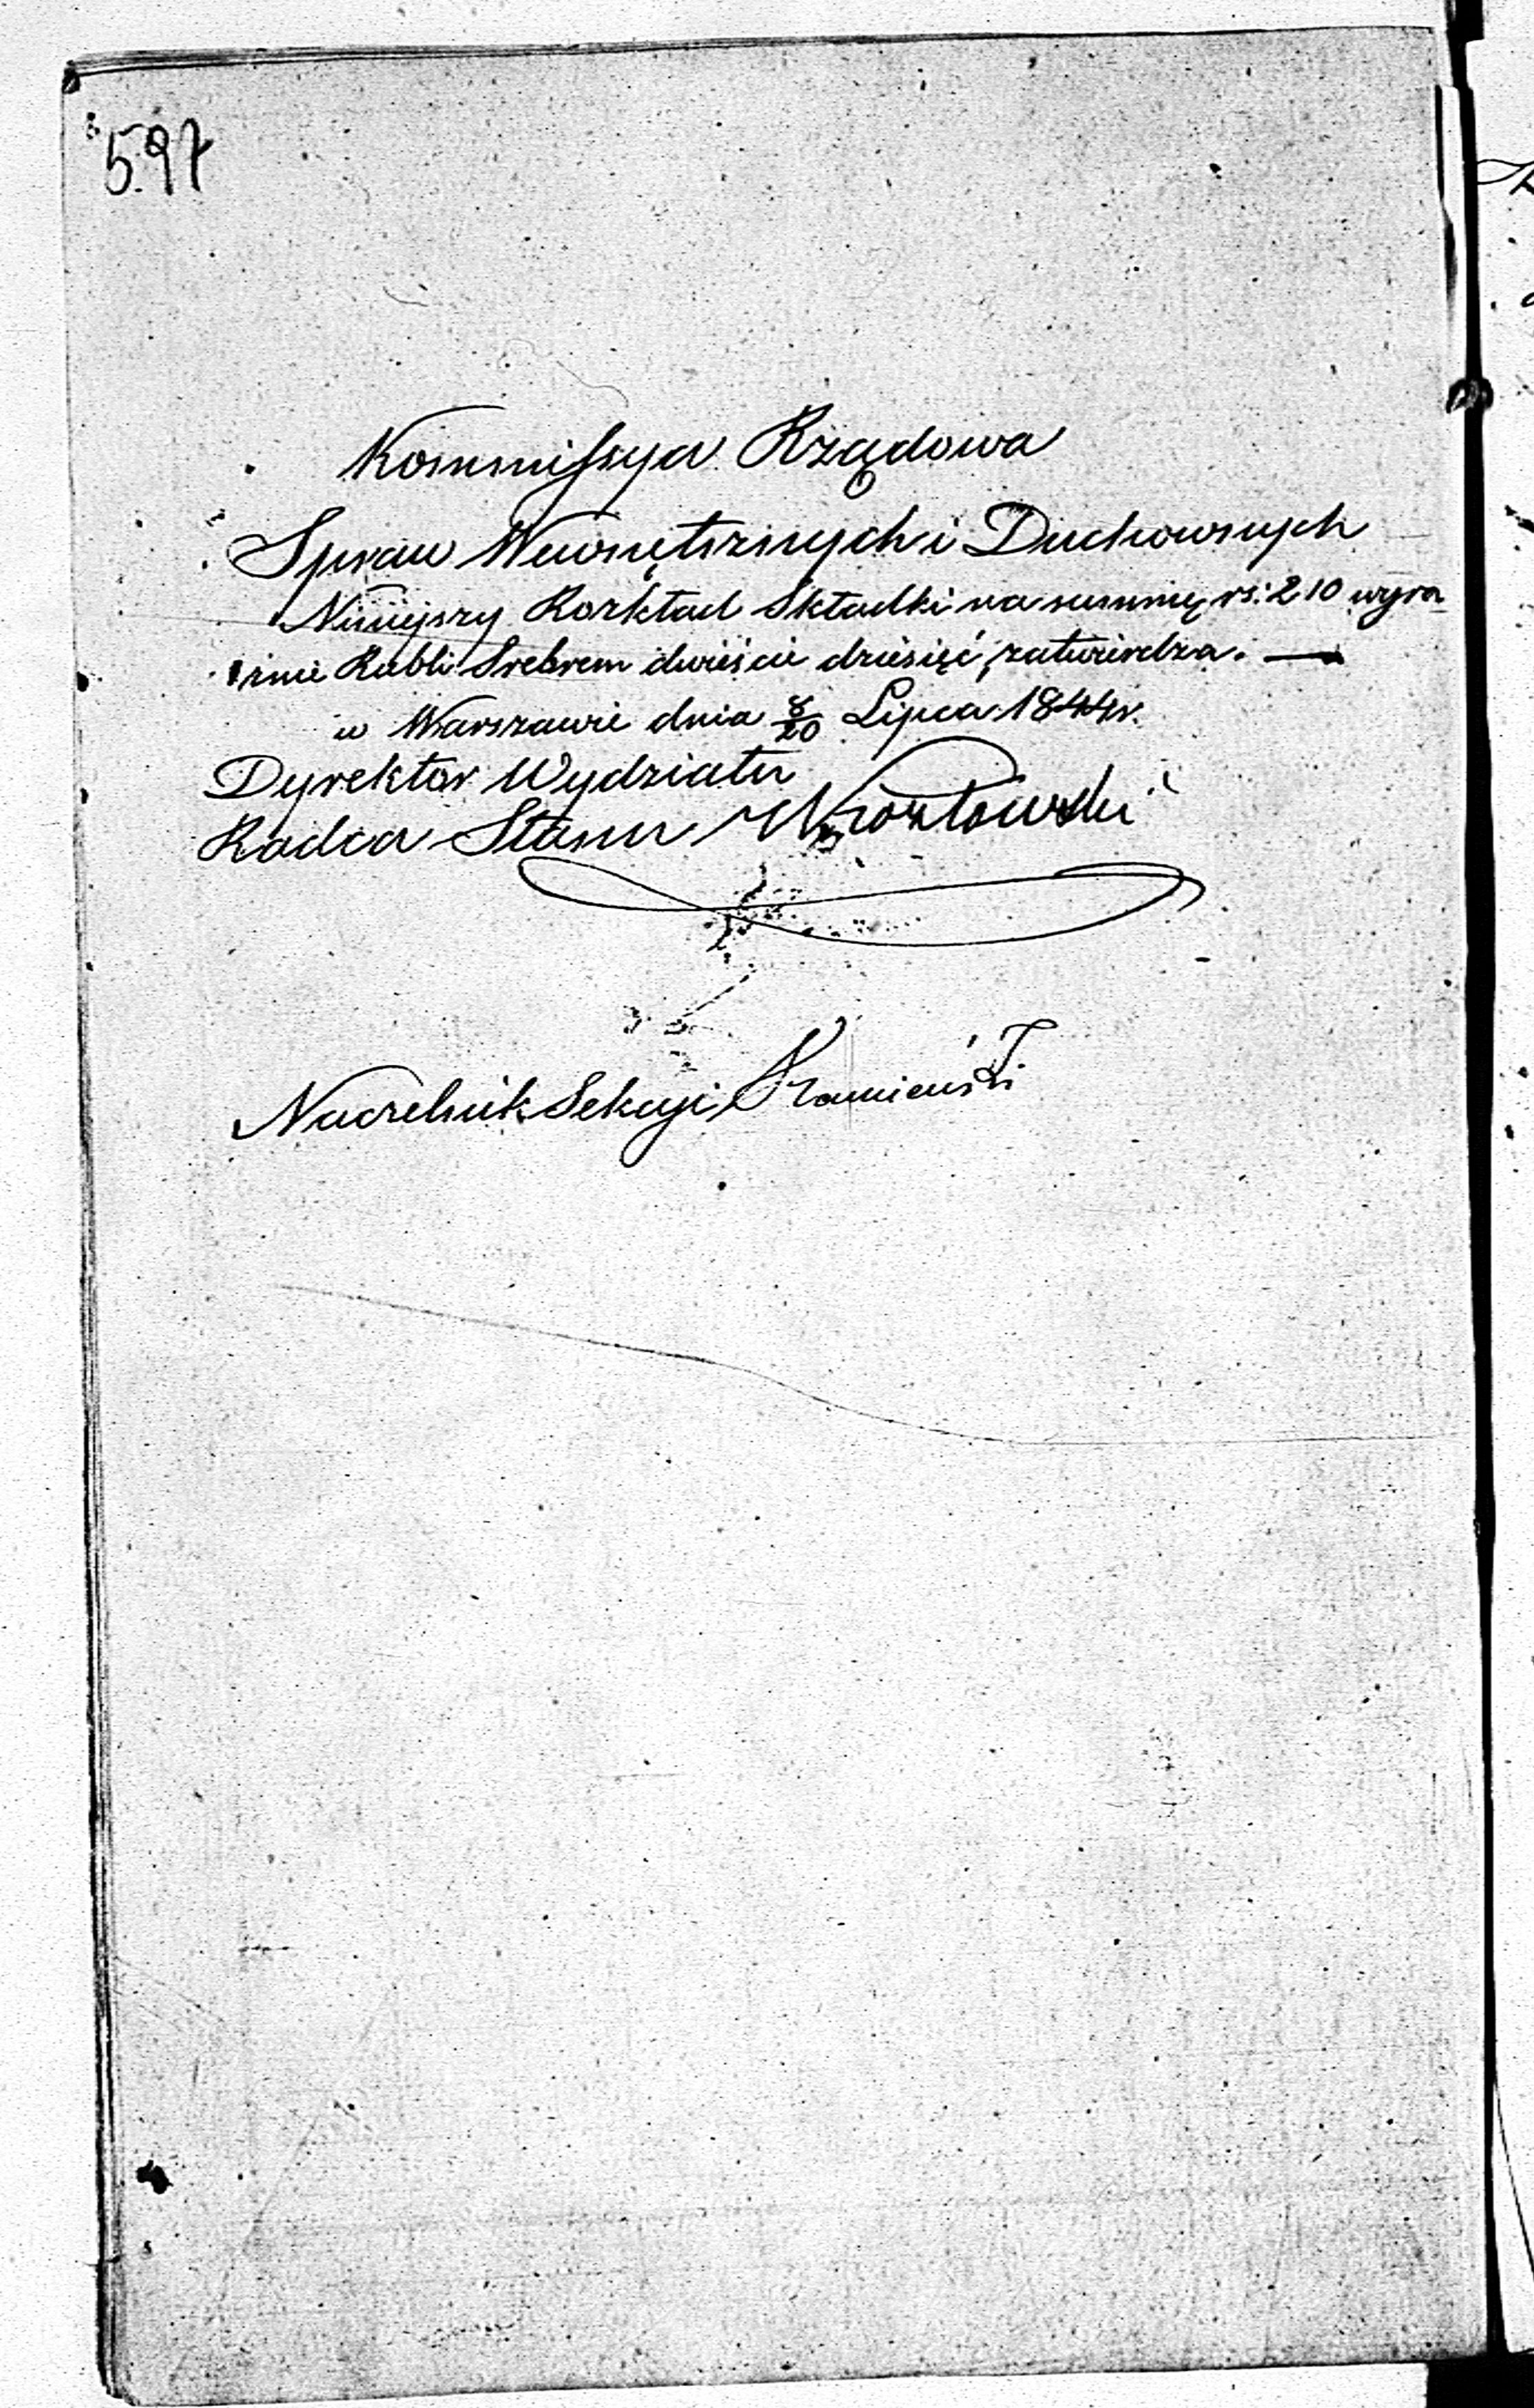 597
Kommissya Rządowa
Spraw Wewnętrznych i Duchownych
Niniejszy Rozkład Składki na summię rs: 210 wyra
źnie Rubli Srebrem dwieście dziesięć, zatwierdza. —
w Warszawie dnia 8/20 Lipca 1844 r.
Dyrektor Wydziału
Radca Stanu Kozłowski
Naczelnik Sekcyi Kamieński